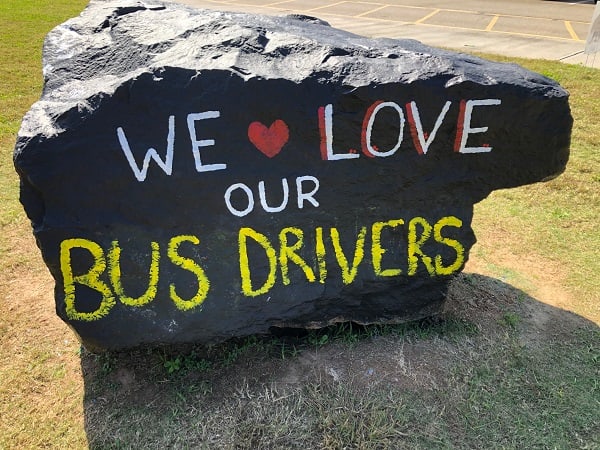 WE ❤ LOVE
OUR
BUS DRIVERS